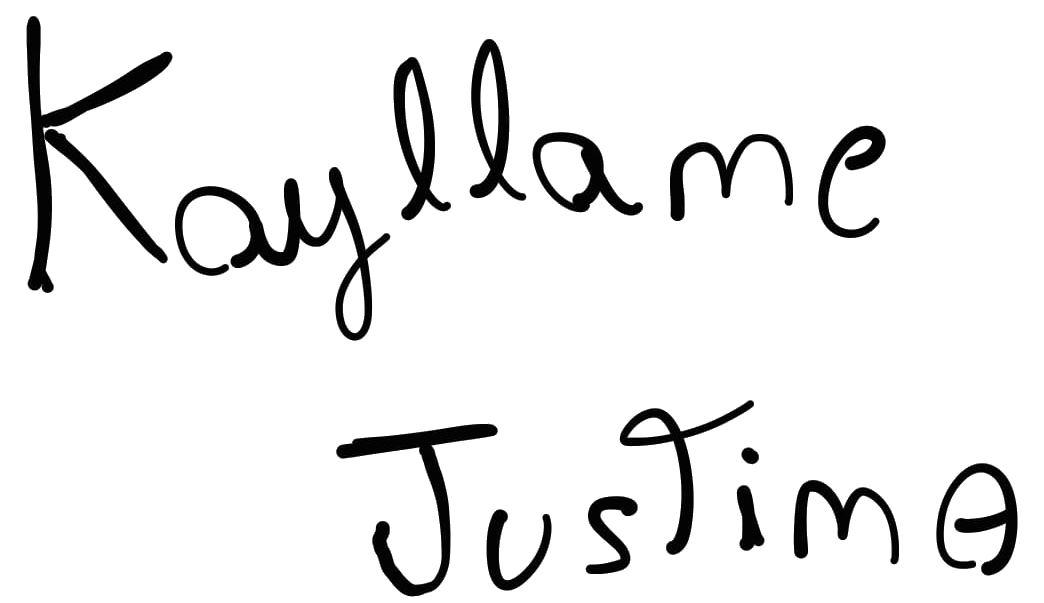 Kayllame
JusTimA